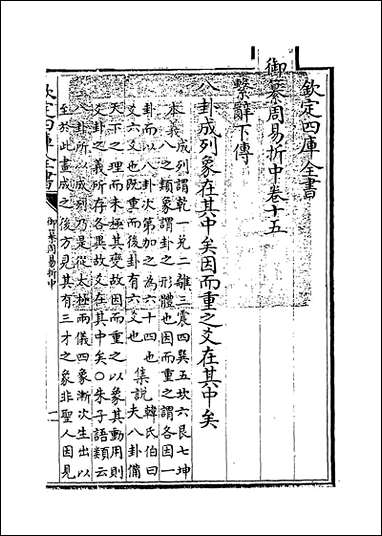 欽定四庫全書
御纂周易折中卷十五
繫辭下傳
八卦成列象在其中矣因而重之爻在其中矣
本義 成列謂乾一兌二離三震四巽五坎六艮七坤
八之類象謂卦之形體也因而重之謂各因一
卦而以八卦次第加之為六十四也 集說 韓氏伯曰
爻六爻也既重而後卦有六爻也 夫八卦備
天下之理而未極其變故因而重之以象其動用則
爻卦之義所存各異故爻在其中矣○朱子語類云
八卦所以成列乃是從太極兩儀四象漸次生出以
至於此畫成之後方見其有三才之象非聖人因見
欽定四庫全書
御纂周易折中
一